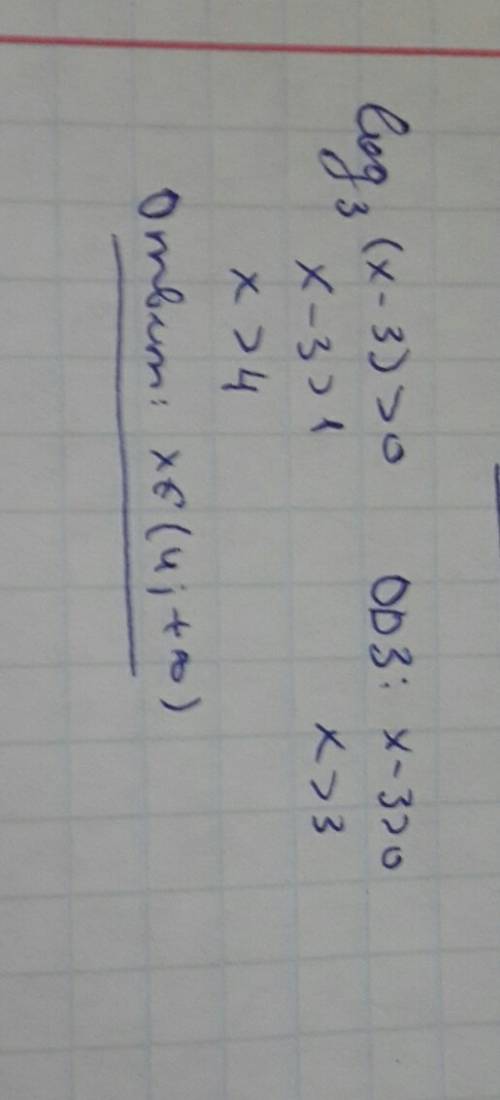 log₃(x-3)>0 ОДЗ: x-3>0
x-3>1 x>3
x>4
Ответ: x∈(4;+∞)